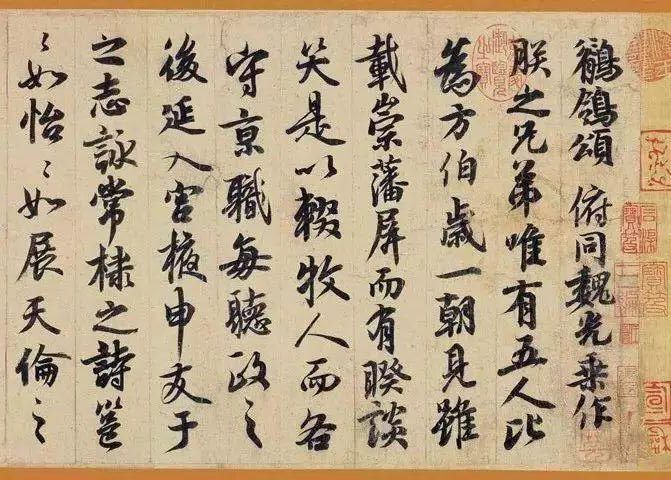 鶺鴒頌 俯同魏光乗作
朕之兄弟唯有五人比
為方伯歳一朝見雖
載崇藩屏而有睽談
笑是以輟牧人而各
守京職毎聽政之
後延入宮掖申友于
之志詠常棣之詩邕
〻如怡〻如展天倫之